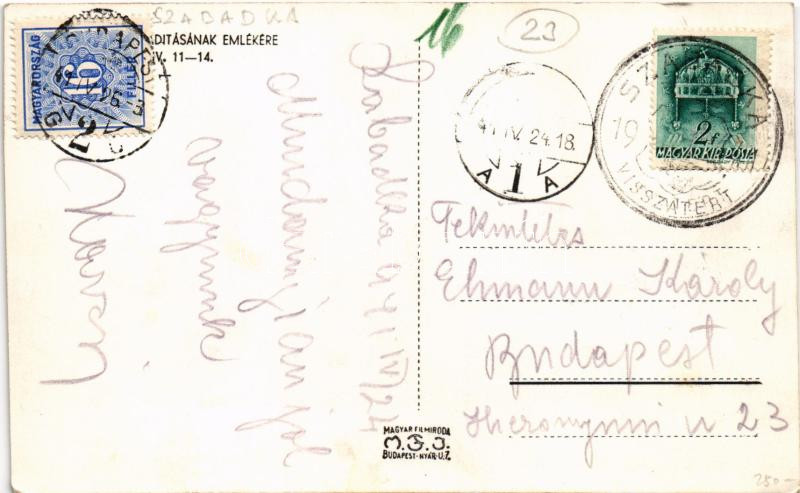 SZABADKA
ADITÁSÁNAK EMLÉKÉRE
IV. 11–14.
MAGYARORSZÁG
16
FILLÉR
BUDAPEST
41 IV 26
2
16
23
Szabadka 941 IV/24
Mindannyian jól
vagyunk
41 IV. 24. 18.
A 1 A
SZABADKA
19
VISSZATÉRT
2 f
MAGYAR KIR. POSTA
Tekintetes
Ehmann Károly
Budapest
Hieronymi u 23
MAGYAR FILMIRODA
M.F.I.
BUDAPEST-NYÁR-U.7.
250-